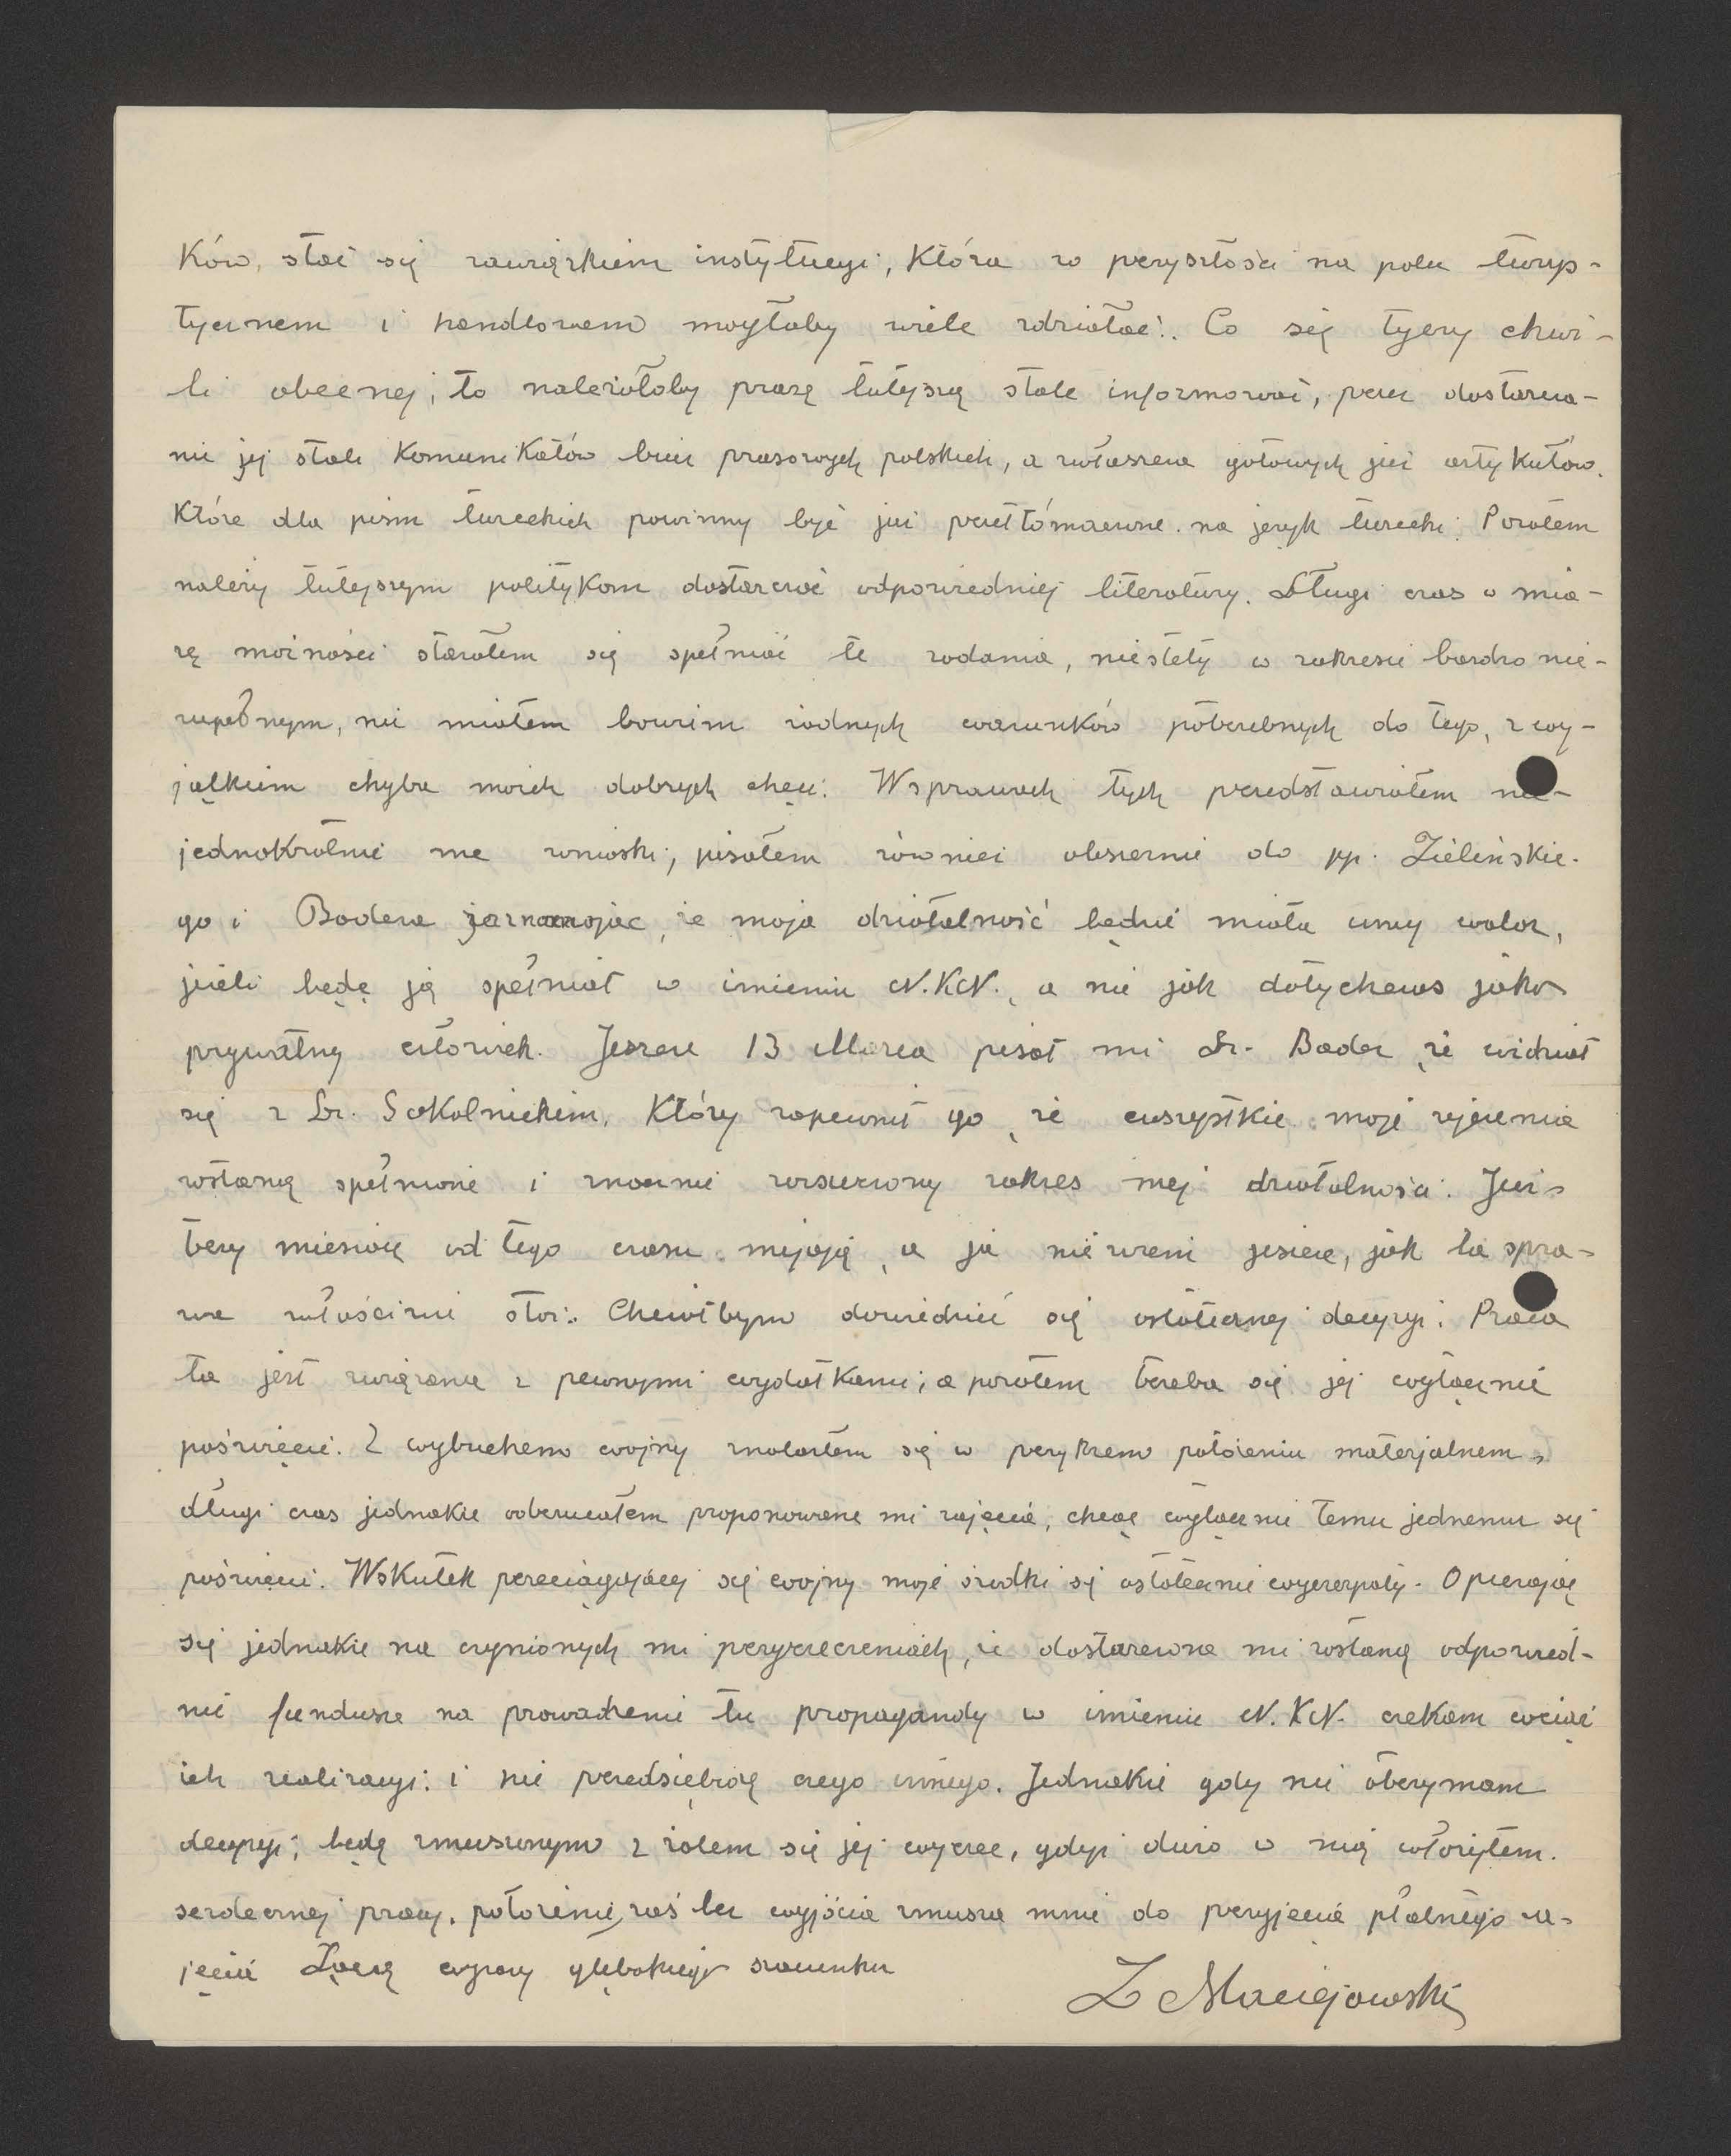 ków, stać się zawiązkiem instytucyi, która w przyszłości na polu turys-
tycznem i handlowem mogłaby wiele zdziałać. Co się tyczy chwi-
li obecnej, to należałoby prasę tutejszą stale informować, przez dostarcza-
nie jej stale komunikatów biur prasowych polskich, a zwłaszcza gotowych już artykułów,
które dla pism tureckich powinny być już przetłómaczone na język turecki. Pozatem
należy tutejszym politykom dostarczać odpowiedniej literatury. Długi czas w mia-
rę możności starałem się spełniać te zadania, niestety w zakresie bardzo nie-
zupełnym, nie miałem bowiem żadnych warunków potrzebnych do tego, z wy-
jątkiem chyba moich dobrych chęci. W sprawach tych przedstawiałem nie-
jednokrotnie me wnioski, pisałem również obszernie do pp. Zielińskie-
go i Badera zaznaczając, że moja działalność będzie miała inny walor,
jeżeli będę ją spełniał w imieniu N.K.N., a nie jak dotychczas jako
prywatny człowiek. Jeszcze 13 Marca pisał mi Dr. Bader, że widział
się z Dr. Sokolnickim, który zapewnił go, że wszystkie moje życzenia
zostaną spełnione i znacznie rozszerzony zakres mej działalności. Już
trzy miesiące od tego czasu mijają, a ja nie wiem jeszcze, jak ta spra-
wa właściwie stoi. Chciałbym dowiedzieć się ostatecznej decyzyi. Praca
ta jest związana z pewnymi wydatkami, a pozatem trzeba się jej wyłącznie
poświęcić. Z wybuchem wojny znalazłem się w przykrem położeniu materjalnem,
długi czas jednakże odrzucałem proponowane mi zajęcia, chcąc wyłącznie temu jednemu się
poświęcić. Wskutek przeciągającej się wojny moje środki się ostatecznie wyczerpały. Opierając
się jednakże na czynionych mi przyrzeczeniach, że dostarczone mi zostaną odpowied-
nie fundusze na prowadzenie tu propagandy w imieniu N.K.N. czekam wciąż
ich realizacyi i nie przedsiębiorę czego innego. Jednakże gdy nie otrzymam
decyzyi, będę zmuszonym z żalem się jej wyrzec, gdyż dużo w nią włożyłem
serdecznej pracy, położenie zaś bez wyjścia zmusza mnie do przyjęcia płatnego za-
jęcia Łączę wyrazy głębokiego szacunku
Z Maciejowski